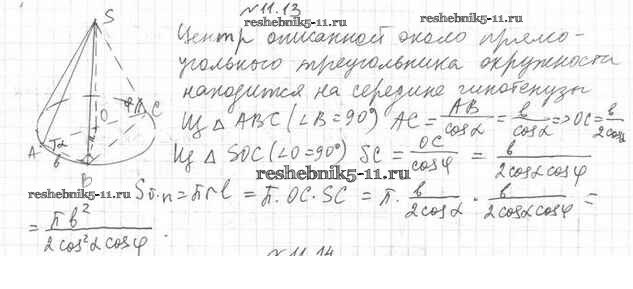 №11.13
reshebnik5-11.ru
reshebnik5-11.ru
Центр описанной около прямо-
угольного треугольника окружности
находится на середине гипотенузы
Из △ ABC (∠B=90°) AC = AB/cosα = b/cosα => OC = b/2cosα
Из △ SOC (∠O=90°) SC = OC/cosφ = b/2cosαcosφ
reshebnik5-11.ru
reshebnik5-11.ru
Sб.п = πrl = π·OC·SC = π· b/2cosα · b/2cosαcosφ =
= πb²/2cos²αcosφ.
№11.14
S
O
φ
C
A
α
b
B